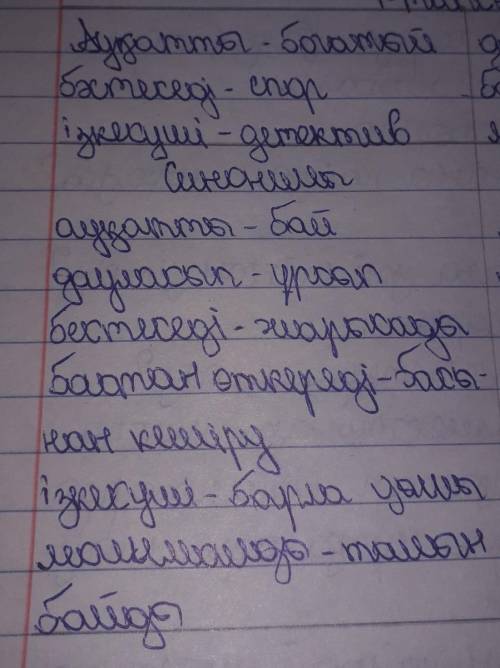 Ауқатты - богатый
бәстеседі - спор
ізкесуші - детектив
Синонимы
ауқатты - бай
дауласып - ұрсып
бектеседі - жарысады
бастан өткереді - басы-
нан кешіру
ізкесуші - барла ушы
молымалды -
байды